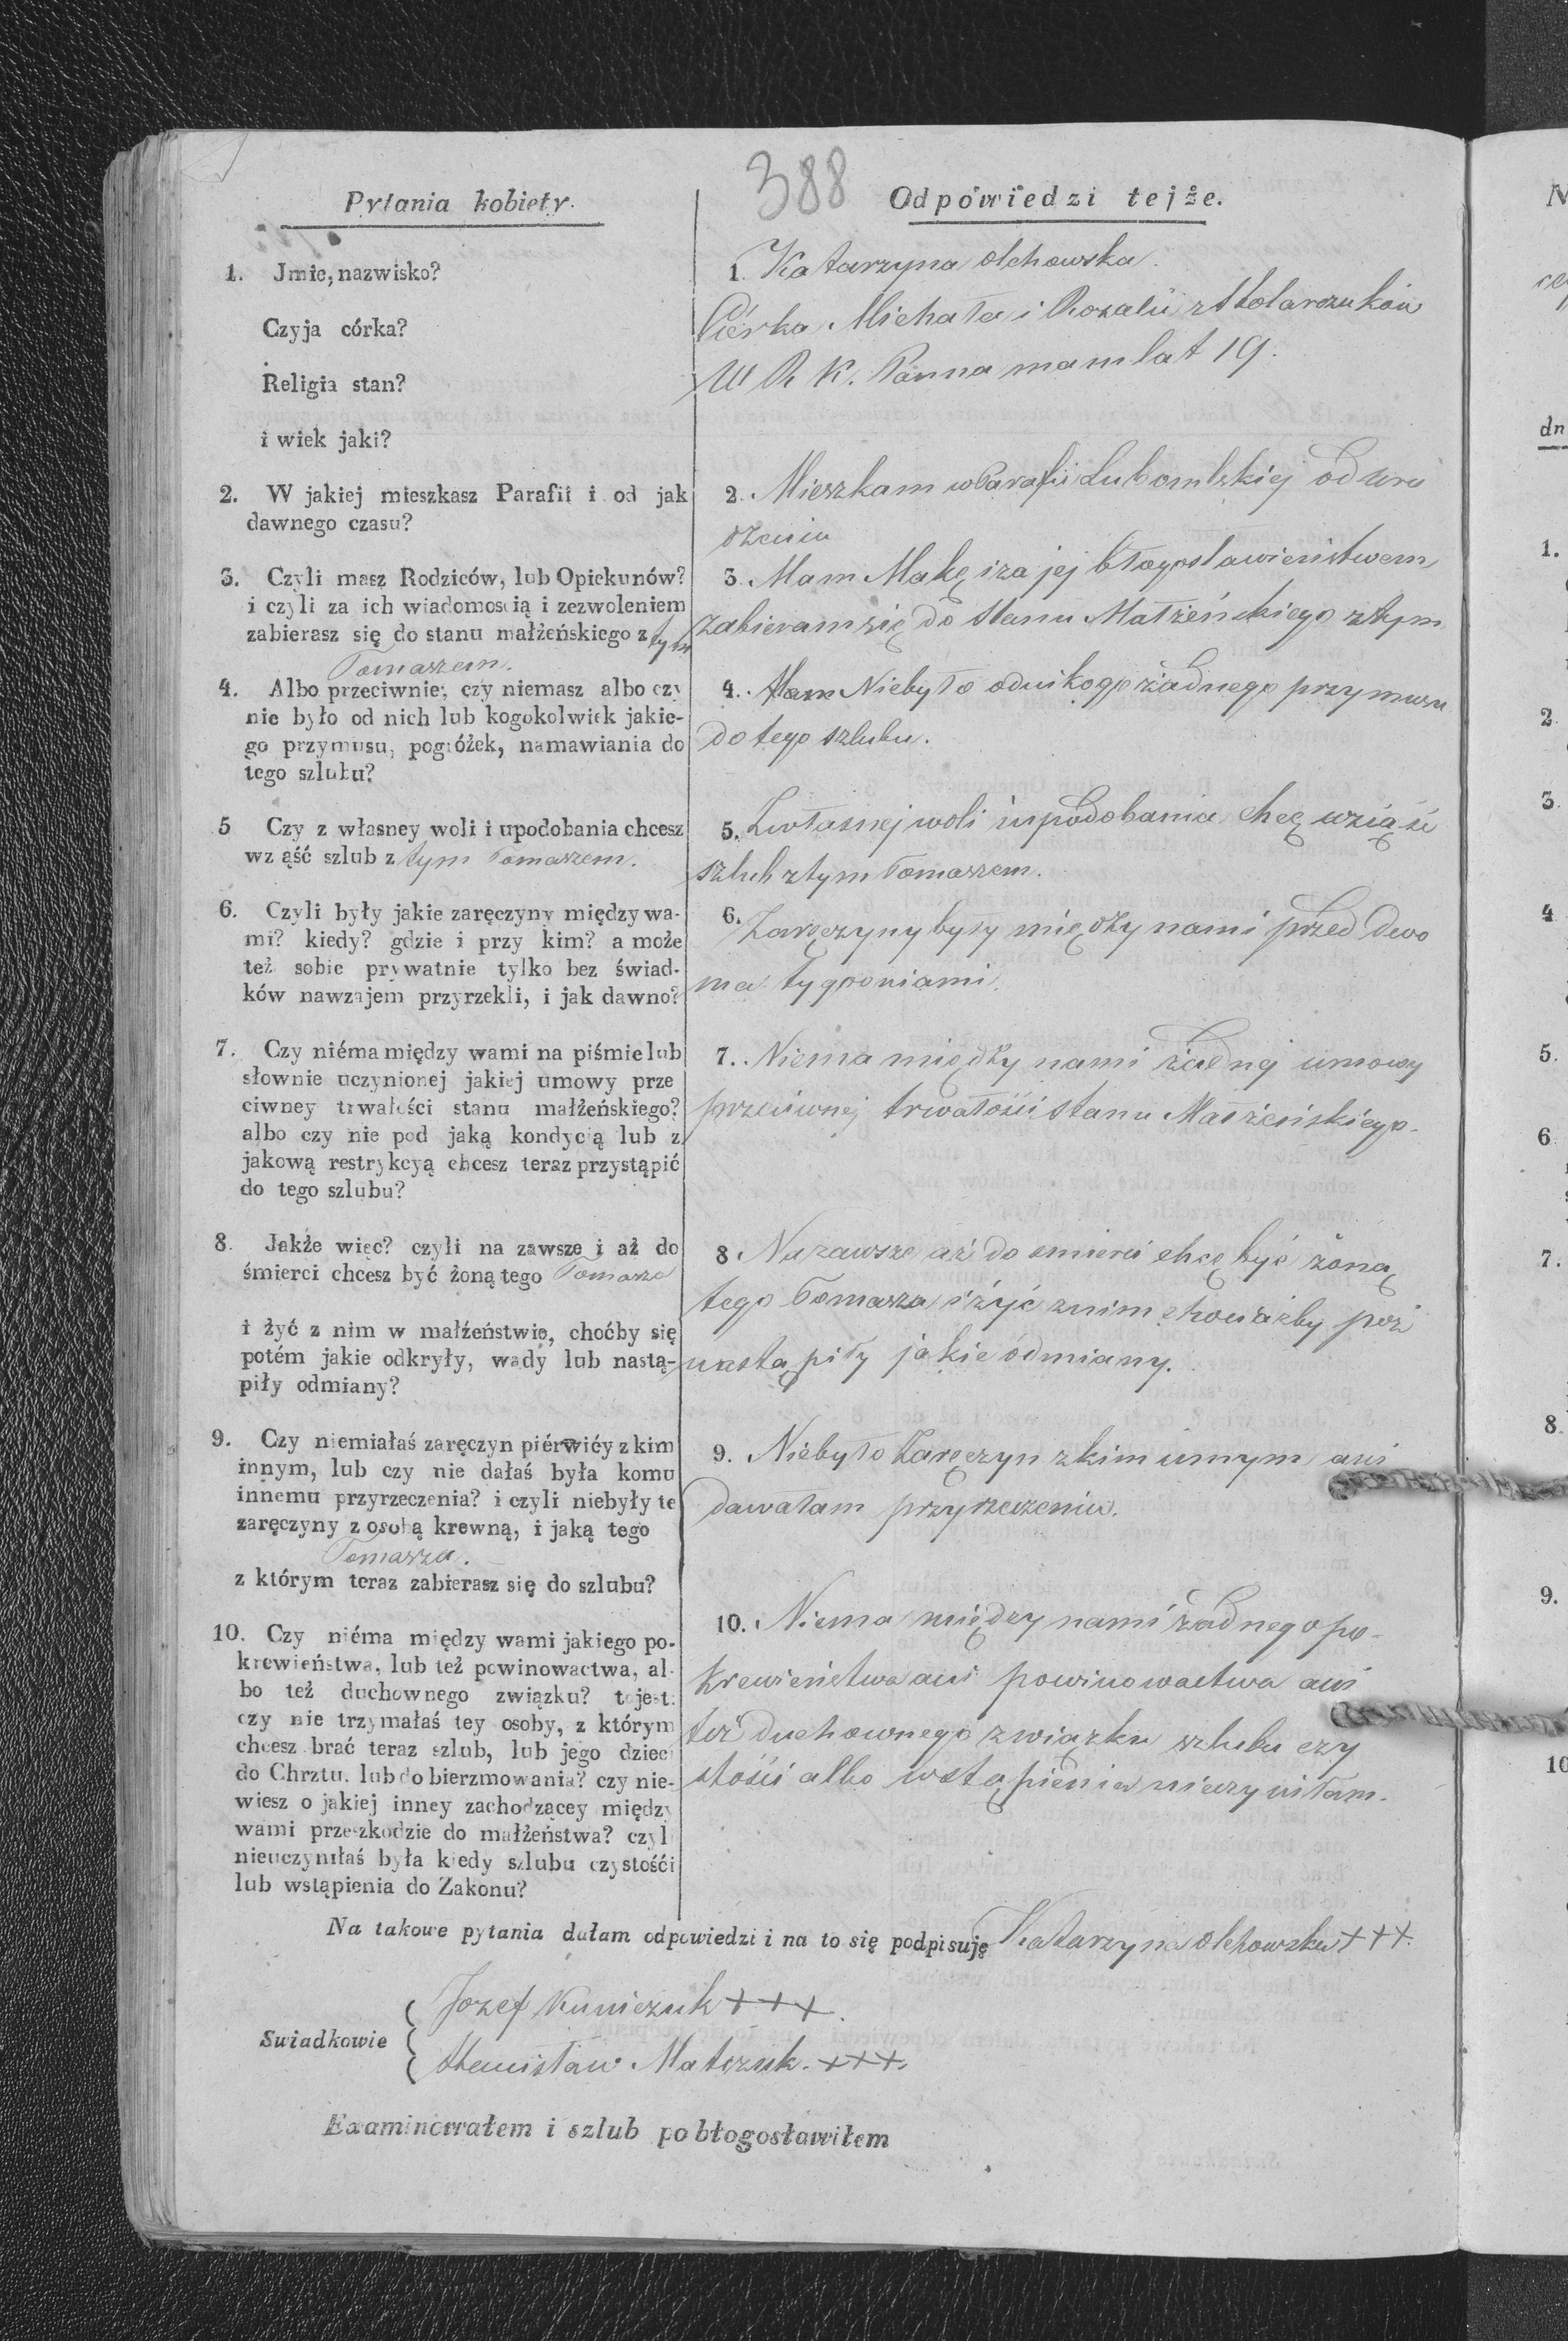 388
Pytania kobiety.
Odpowiedzi tejże.
1. Jmie, nazwisko?
Czyja córka?
Religia stan?
i wiek jaki?
1. Katarzyna Olchowska.
Córka Michała i Rozalii z Stolarczuków
W R K. Panna mam lat 19.
2. W jakiej mieszkasz Parafii i od jak
dawnego czasu?
2. Mieszkam w Parafii Lubomlskiej od uro
dzeniu
3. Czyli masz Rodziców, lub Opiekunów?
i czyli za ich wiadomością i zezwoleniem
zabierasz się do stanu małżeńskiego z tym
Tomaszem.
3. Mam Matkę i za jej błogosławieństwem
zabieram się do stanu Małżeńskiego z tym
4. Albo przeciwnie, czy niemasz albo czy
nie było od nich lub kogokolwiek jakie-
go przymusu, pogróżek, namawiania do
tego szlubu?
4. Niebyło od nikogo żadnego przymusu
do tego szlubu.
5 Czy z własney woli i upodobania chcesz
wziąść szlub z tym Tomaszem.
5. Z własnej woli i upodobania chcę wziąść
szlub z tym Tomaszem.
6. Czyli były jakie zaręczyny między wa-
mi? kiedy? gdzie i przy kim? a może
też sobie prywatnie tylko bez świad-
ków nawzajem przyrzekli, i jak dawno?
6. Zaręczyny były między nami przed dwo
ma tygodniami.
7. Czy niéma między wami na piśmie lub
słownie uczynionej jakiej umowy prze
ciwney trwałości stanu małżeńskiego?
albo czy nie pod jaką kondycią lub z
jakową restrykcyą chcesz teraz przystąpić
do tego szlubu?
7. Niema między nami żadnej umowy
przeciwnej trwałości stanu Małżeńskiego.
8. Jakże więc? czyli na zawsze i aż do
śmierci chcesz być żoną tego Tomasza
i żyć z nim w małżeństwie, choćby się
potém jakie odkryły, wady lub nastą-
piły odmiany?
8 Na zawsze aż do smierci chcę być żoną
tego Tomasza i żyć z nim chociażby
nastąpiły jakie odmiany.
9. Czy niemiałaś zaręczyn piérwiéy z kim
innym, lub czy nie dałaś była komu
innemu przyrzeczenia? i czyli niebyły te
zaręczyny z osobą krewną, i jaką tego
Tomasza.
z którym teraz zabierasz się do szlubu?
9. Niebyło Zaręczyn z kim innym ani
dawałam przyrzeczenia.
10. Czy niéma między wami jakiego po-
krewieństwa, lub też powinowactwa, al-
bo też duchownego związku? to jest:
czy nie trzymałaś tey osoby, z którym
chcesz brać teraz szlub, lub jego dzieci
do Chrztu, lub do bierzmowania? czy nie-
wiesz o jakiej inney zachodzącey między
wami przeszkodzie do małżeństwa? czyli
nieuczyniłaś była kiedy szlubu czystośći
lub wstąpienia do Zakonu?
10. Niema między nami żadnego po-
krewieństwa ani powinowactwa ani
też duchownego związku szlubu czy
stości albo wstąpienia nieczyniłam.
Na takowe pytania dałam odpowiedzi i na to się podpisuję Katarzyna Olchowska +++.
Swiadkowie
Jozef Kuniczuk +++.
Stanisław Matczuk. +++.
Examinowałem i szlub pobłogosławiłem